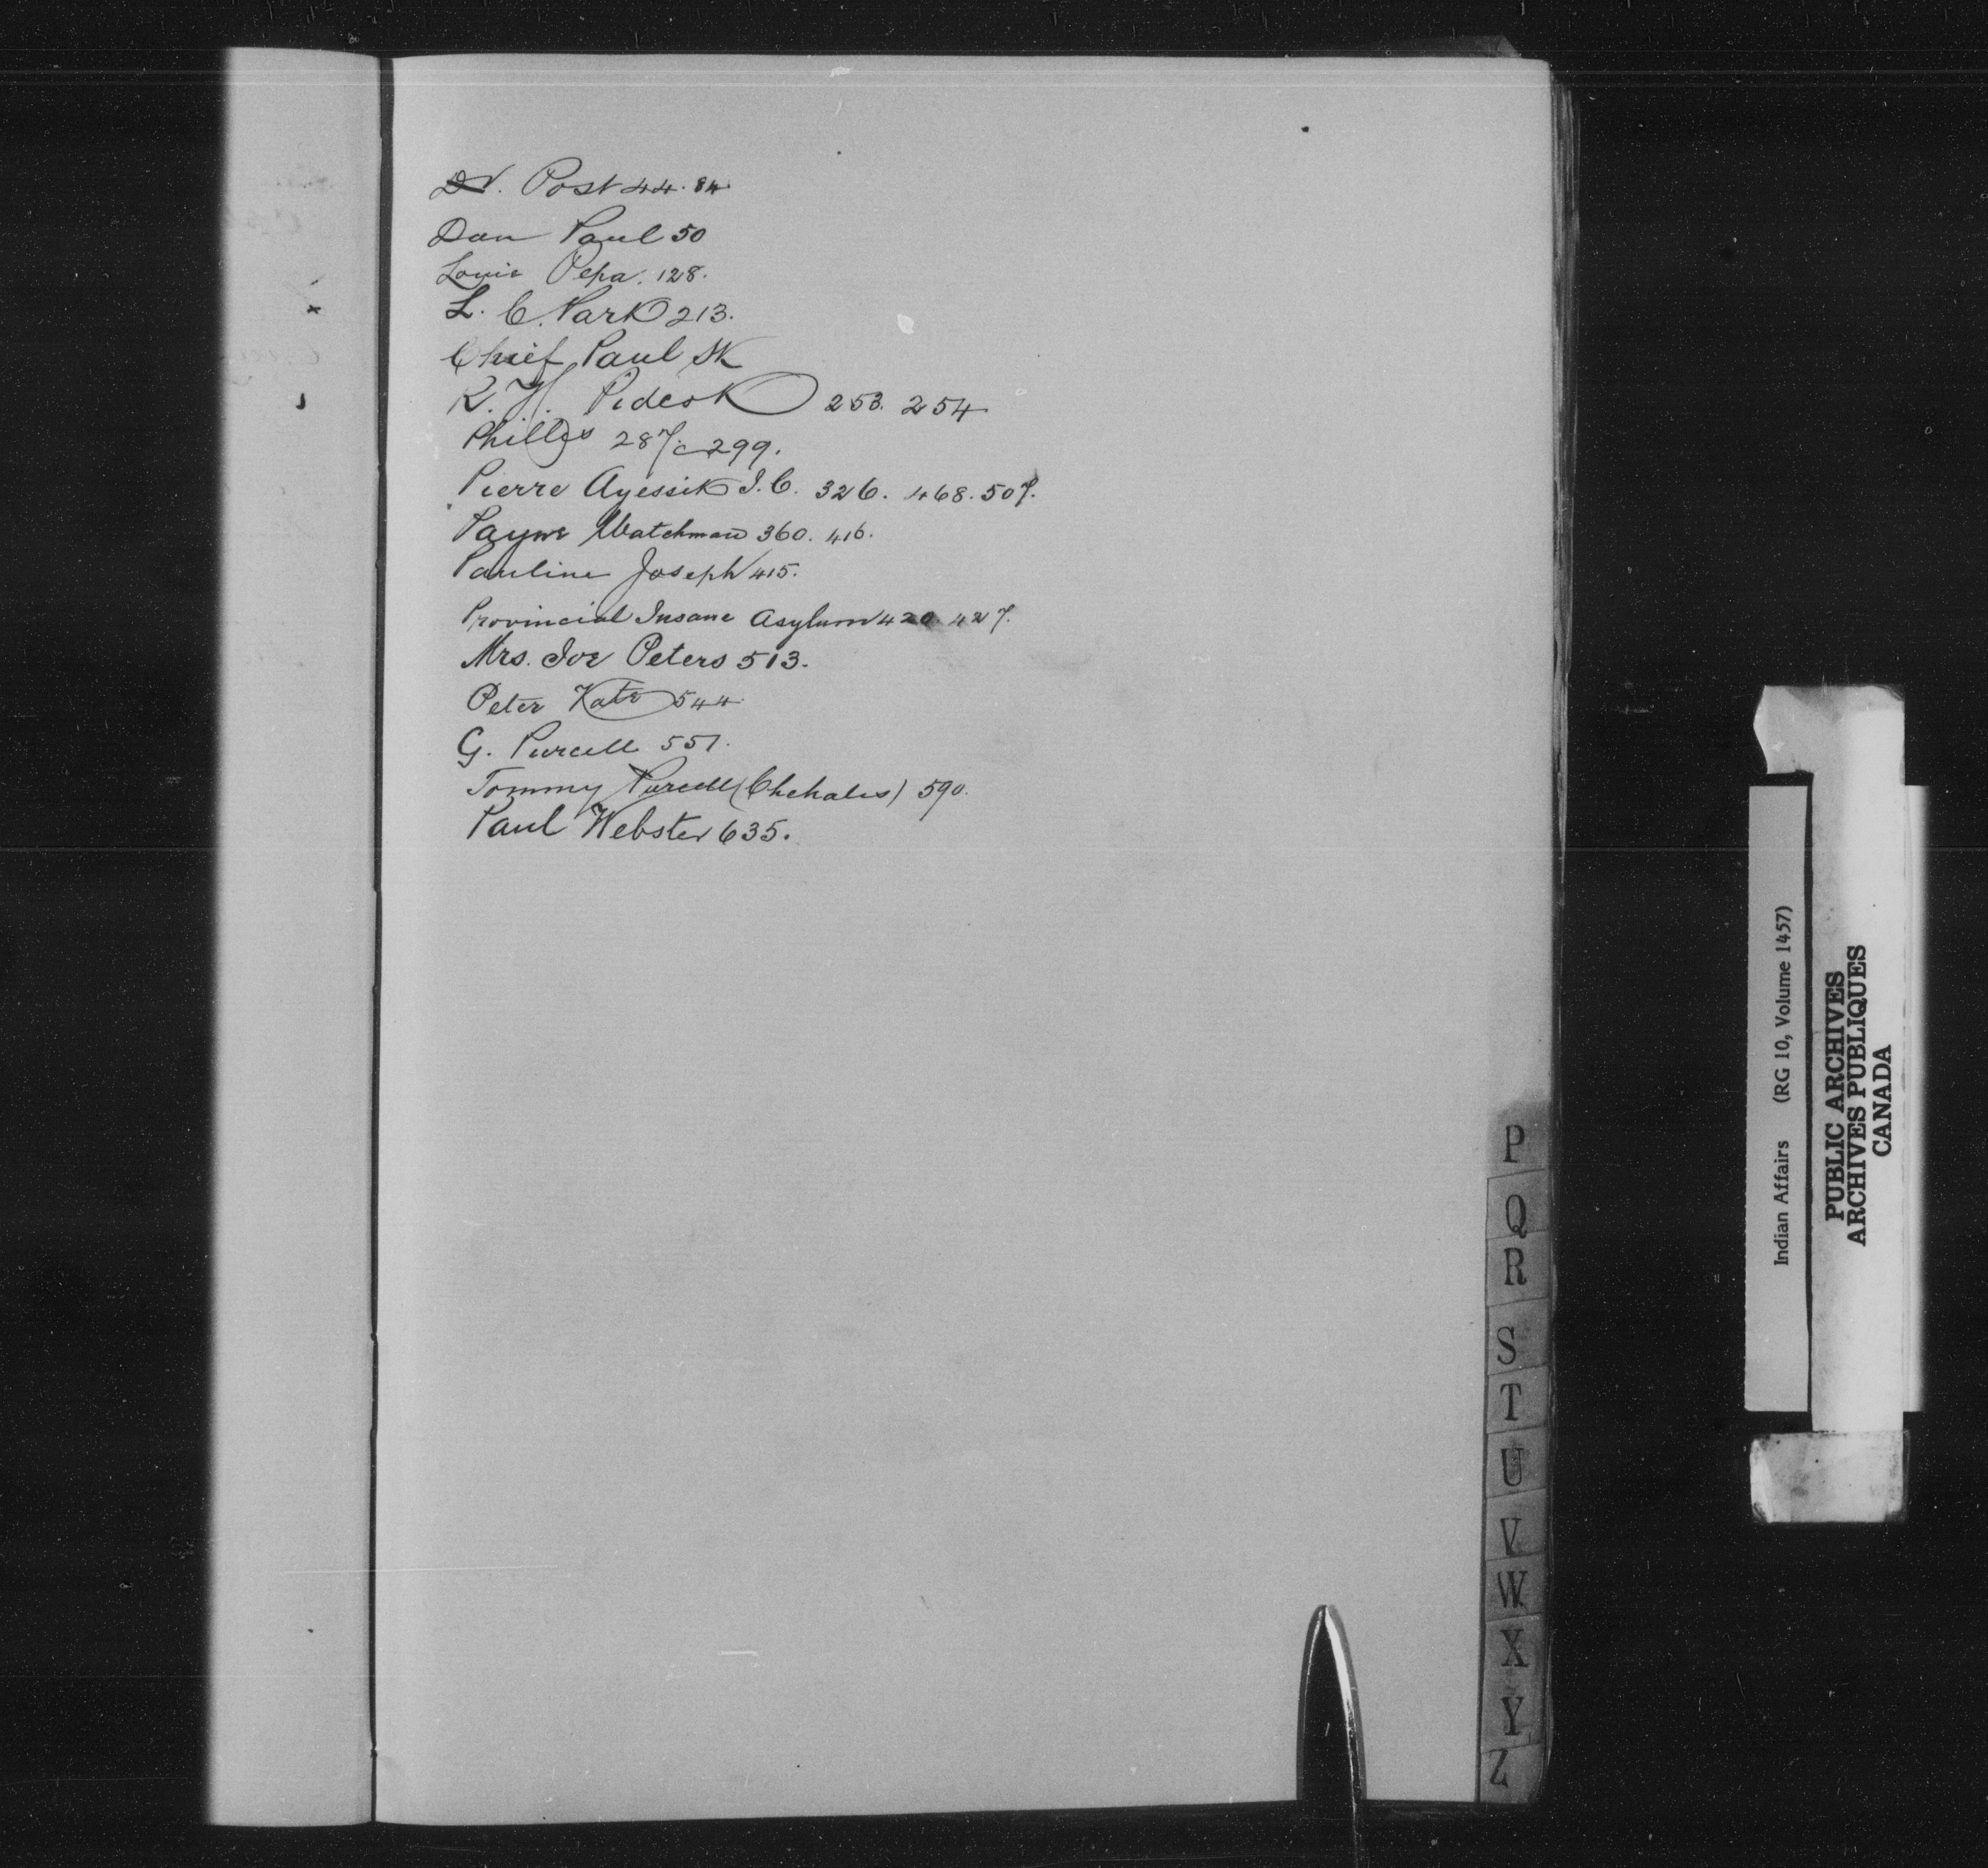 Post 44. 84
Dan Paul 50
Louie Pepa. 128.
L. C. Park 213.
Chief Paul
R. H. Pidcock 253. 254
Phillips 287. 299.
Pierre Ayessik I.C. 326. 468. 507.
Payne Watchman 360. 416.
Pauline Joseph 415.
Provincial Insane Asylum 420. 427.
Mrs. Joe Peters 513.
Peter Kate 544
G. Purcell 551.
Tommy Purcell (Chehales) 590.
Paul Webster 635.
P
Q
R
S
T
U
V
W
X
Y
Z
Indian Affairs (RG 10, Volume 1457)
PUBLIC ARCHIVES
ARCHIVES PUBLIQUES
CANADA